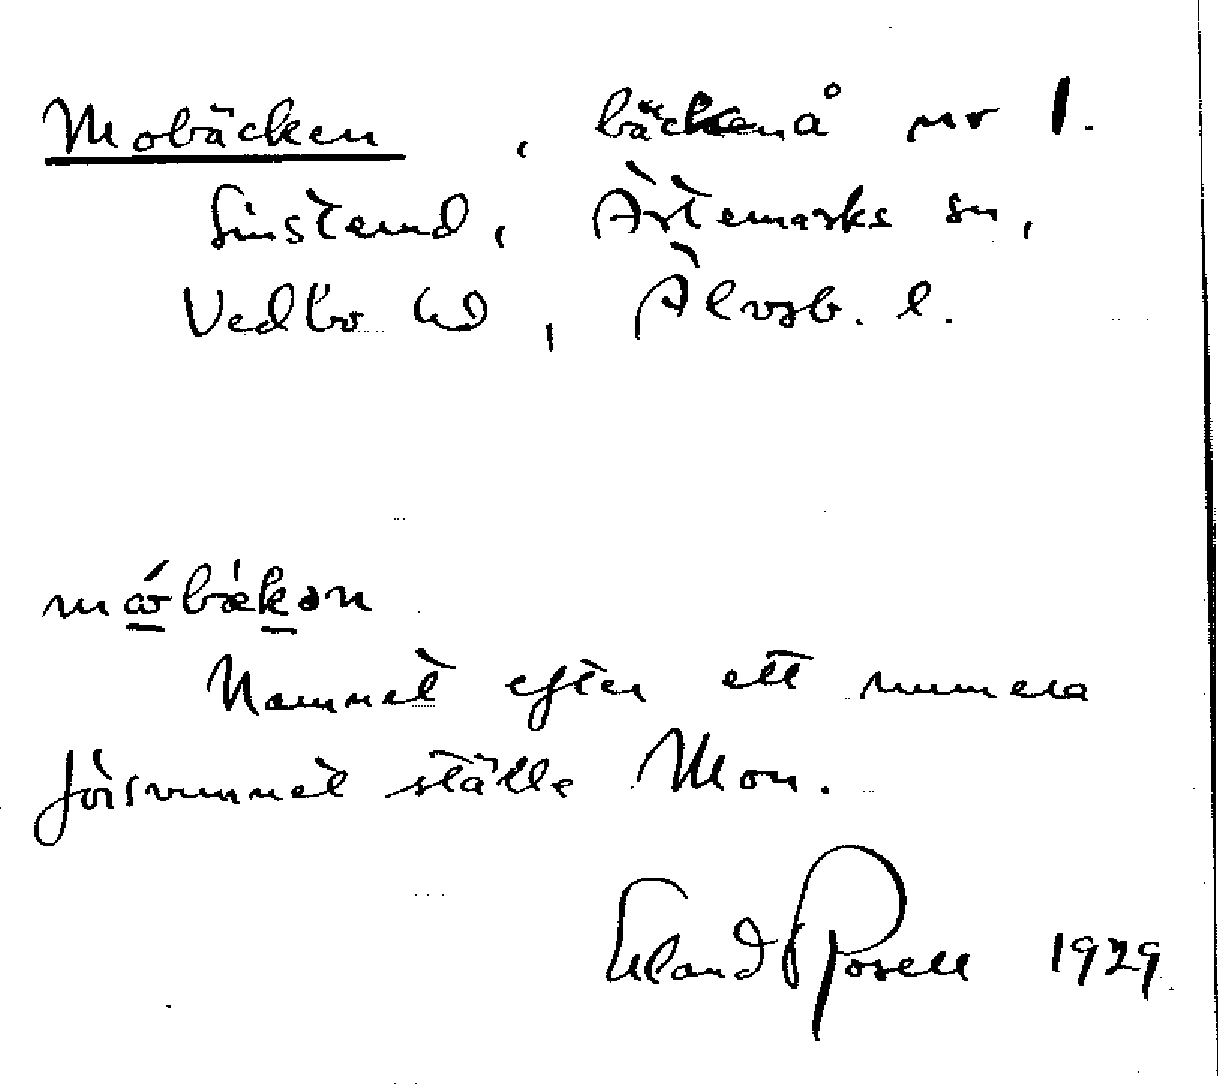 Mobäcken, bäckenå nr 1.
Finsterud, Ärtemarks sn,
Vedbo hd, Älvsb. l.
mωbækən
Namnet efter ett numera
försvunnet ställe Mon.
Erland Rosell 1929